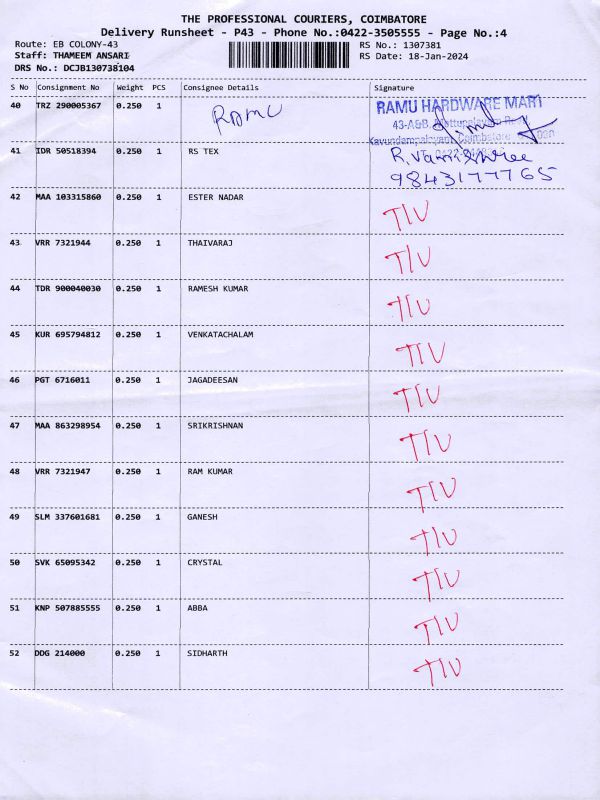 THE PROFESSIONAL COURIERS, COIMBATORE
Delivery Runsheet - P43 - Phone No.:0422-3505555 - Page No.:4
Route: EB COLONY-43
RS No.: 1307381
Staff: THAMEEM ANSARI
RS Date: 18-Jan-2024
DRS No.: DCJB130738104
S No Consignment No Weight PCS Consignee Details Signature
40 TRZ 290005367 0.250 1 RAMU
RAMU HARDWARE MART
43-A&B,
Kavundampalayam, Coimbatore
41 IDR 50518394 0.250 1 RS TEX
9843177765
42 MAA 103315860 0.250 1 ESTER NADAR TIU
43 VRR 7321944 0.250 1 THAIVARAJ TIU
44 TDR 900040030 0.250 1 RAMESH KUMAR TIU
45 KUR 695794812 0.250 1 VENKATACHALAM TIU
46 PGT 6716011 0.250 1 JAGADEESAN TIU
47 MAA 863298954 0.250 1 SRIKRISHNAN TIU
48 VRR 7321947 0.250 1 RAM KUMAR TIU
49 SLM 337601681 0.250 1 GANESH TIU
50 SVK 65095342 0.250 1 CRYSTAL TIU
51 KNP 507885555 0.250 1 ABBA TIU
52 DDG 214000 0.250 1 SIDHARTH TIU